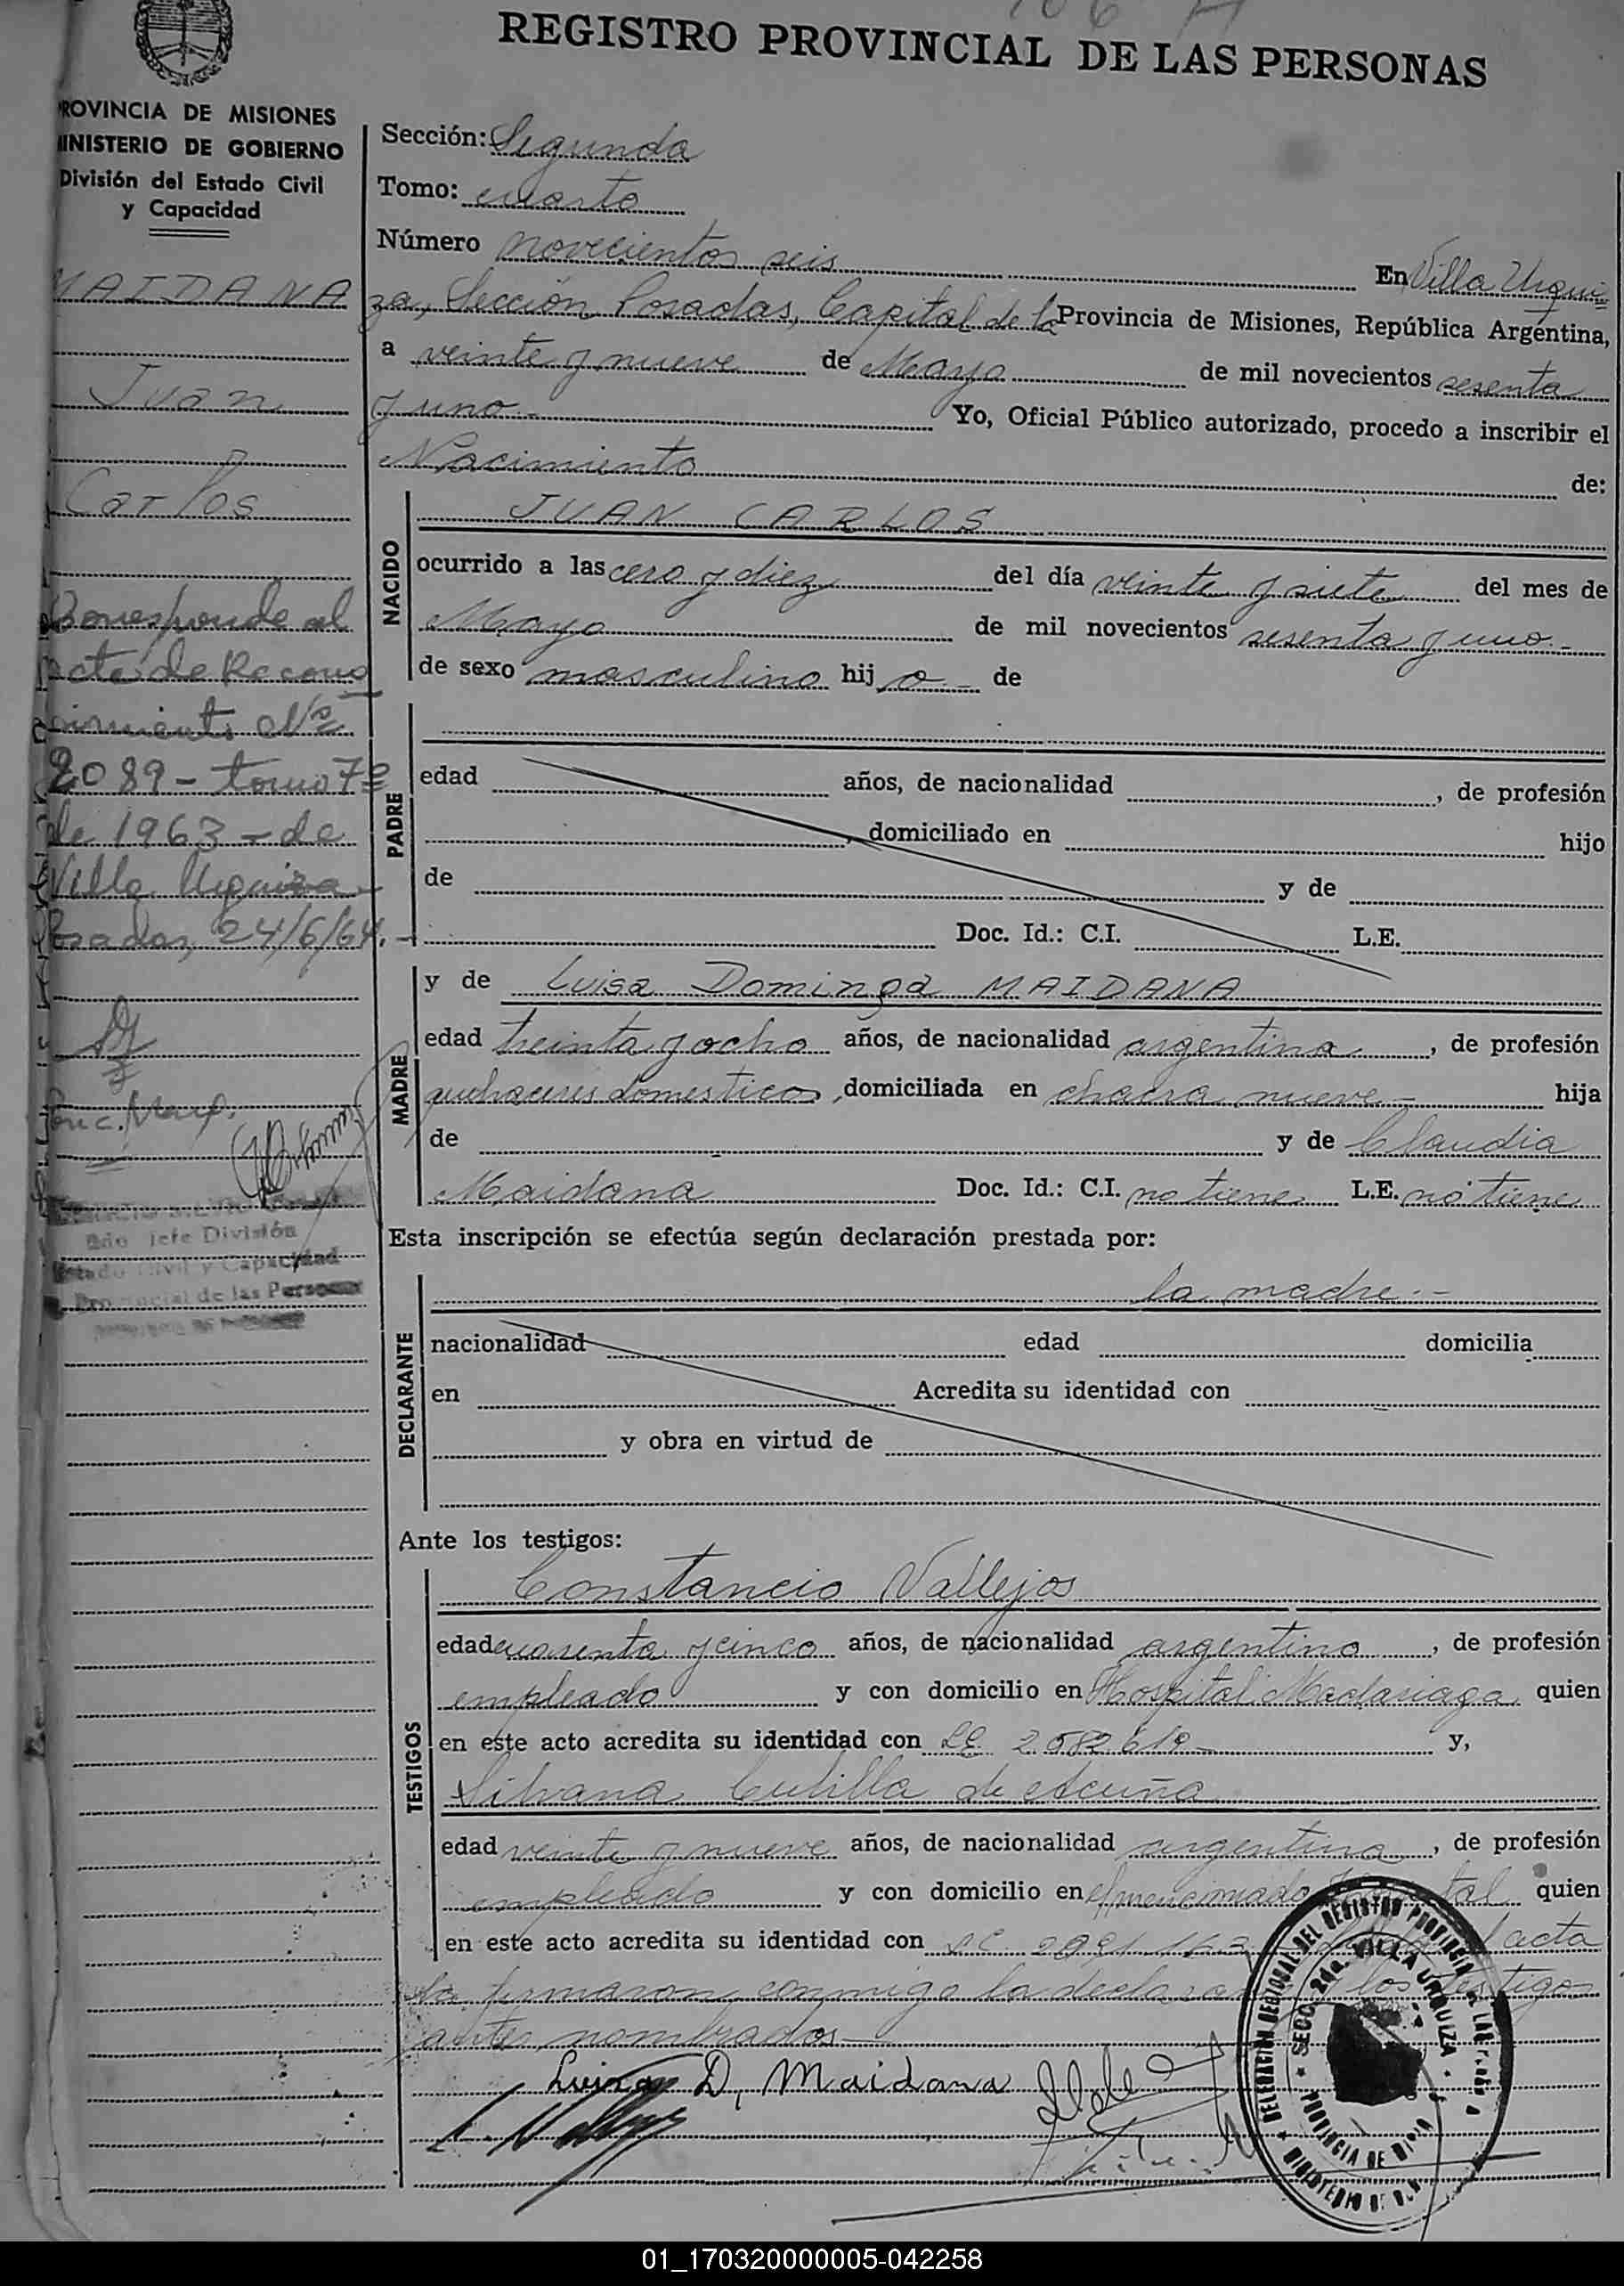 REGISTRO PROVINCIAL DE LAS PERSONAS
PROVINCIA DE MISIONES
MINISTERIO DE GOBIERNO
División del Estado Civil
y Capacidad
MAIDANA
Juan
Carlos
Corresponde al
acta de Recono
cimiento Nº
2089 - tomo 7º
de 1963 - de
Villa Urquiza -
Posadas, 24/6/64.-
Jefe División
Estado Civil y Capacidad
Provincial de las Personas
Sección: Segunda
Tomo: cuarto
Número novecientos seis En Villa Urqui-
za, Sección Posadas, Capital de la Provincia de Misiones, República Argentina,
a veinte y nueve de Mayo de mil novecientos sesenta
y uno.- Yo, Oficial Público autorizado, procedo a inscribir el
Nacimiento de:
NACIDO
JUAN CARLOS
ocurrido a las cero y diez del día veinte y siete del mes de
Mayo de mil novecientos sesenta y uno.-
de sexo masculino hij o - de
PADRE
edad años, de nacionalidad , de profesión
, domiciliado en hijo
de y de
Doc. Id.: C.I. L.E.
MADRE
y de Luisa Dominga MAIDANA
edad treinta y ocho años, de nacionalidad argentina , de profesión
quehaceres domesticos , domiciliada en chacra nueve.- hija
de y de Claudia
Maidana Doc. Id.: C.I. no tiene L.E. no tiene
Esta inscripción se efectúa según declaración prestada por:
DECLARANTE
la madre.-
nacionalidad edad domicilia
en Acredita su identidad con
y obra en virtud de
Ante los testigos:
TESTIGOS
Constancio Vallejos
edad cuarenta y cinco años, de nacionalidad argentino , de profesión
empleado y con domicilio en Hospital Madariaga quien
en este acto acredita su identidad con 2.582.612 y,
Silvana Cubilla de Acuña
edad veinte y nueve años, de nacionalidad argentina , de profesión
empleado y con domicilio en el mencionado Hospital quien
en este acto acredita su identidad con acta
la firmaron conmigo la declarante los testigos
antes nombrados.-
Luisa D. Maidana
DELEGACION REGIONAL DEL REGISTRO PROVINCIAL DE LAS
SECC. 2da. VILLA URQUIZA
PROVINCIA DE
MINISTERIO DE
01_170320000005-042258